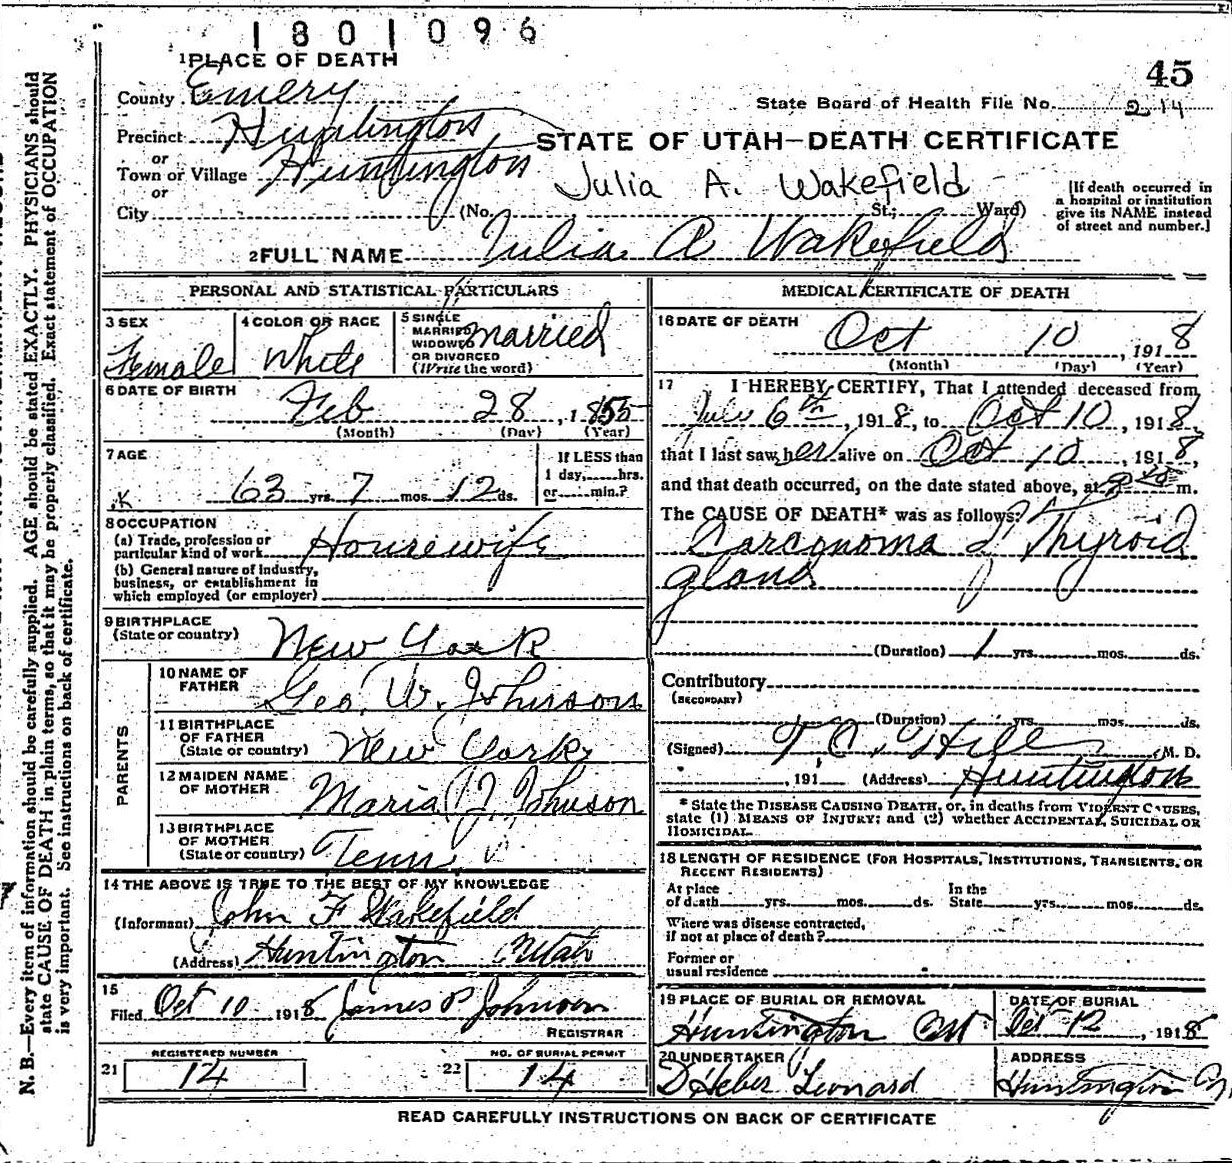 1801096
45
1 PLACE OF DEATH
County Emery
State Board of Health File No. 214
Precinct Huntington
STATE OF UTAH—DEATH CERTIFICATE
or
Town or Village Huntington
or
Julia A. Wakefield
City (No. St.; Ward)
[If death occurred in a hospital or institution give its NAME instead of street and number.]
2 FULL NAME Julia A Wakefield
PERSONAL AND STATISTICAL PARTICULARS
3 SEX
Female
4 COLOR OR RACE
White
5 SINGLE
MARRIED
WIDOWED
OR DIVORCED
(Write the word)
married
6 DATE OF BIRTH
Feb 28, 1855
(Month) (Day) (Year)
7 AGE
63 yrs. 7 mos. 12 ds.
If LESS than
1 day, hrs.
or min.?
8 OCCUPATION
(a) Trade, profession or
particular kind of work Housewife
(b) General nature of industry,
business, or establishment in
which employed (or employer)
9 BIRTHPLACE
(State or country) New York
PARENTS
10 NAME OF
FATHER Geo. W. Johnson
11 BIRTHPLACE
OF FATHER
(State or country) New York
12 MAIDEN NAME
OF MOTHER Maria J. Johnson
13 BIRTHPLACE
OF MOTHER
(State or country) Tenn
14 THE ABOVE IS TRUE TO THE BEST OF MY KNOWLEDGE
(Informant) John F Wakefield
(Address) Huntington Utah
15
Filed Oct 10 1918 James P Johnson
REGISTRAR
21 REGISTERED NUMBER
14
22 NO. OF BURIAL PERMIT
14
MEDICAL CERTIFICATE OF DEATH
16 DATE OF DEATH
Oct 10, 1918
(Month) (Day) (Year)
17 I HEREBY CERTIFY, That I attended deceased from
July 6th, 1918, to Oct 10, 1918,
that I last saw her alive on Oct 10, 1918,
and that death occurred, on the date stated above, at m.
The CAUSE OF DEATH* was as follows:
Carcgnoma of Thyroid
gland
(Duration) 1 yrs. mos. ds.
Contributory
(SECONDARY)
(Duration) yrs. mos. ds.
(Signed) T C Hill M. D.
, 191 (Address) Huntington
* State the DISEASE CAUSING DEATH, or, in deaths from VIOLENT CAUSES,
state (1) MEANS OF INJURY; and (2) whether ACCIDENTAL, SUICIDAL OR
HOMICIDAL.
18 LENGTH OF RESIDENCE (FOR HOSPITALS, INSTITUTIONS, TRANSIENTS, OR
RECENT RESIDENTS)
At place
of death yrs. mos. ds.
In the
State yrs. mos. ds.
Where was disease contracted,
if not at place of death?
Former or
usual residence
19 PLACE OF BURIAL OR REMOVAL
Huntington
DATE OF BURIAL
Oct 12, 1918
20 UNDERTAKER
D Heber Leonard
ADDRESS
Huntington
READ CAREFULLY INSTRUCTIONS ON BACK OF CERTIFICATE
N. B.—Every item of information should be carefully supplied. AGE should be stated EXACTLY. PHYSICIANS should
state CAUSE OF DEATH in plain terms, so that it may be properly classified. Exact statement of OCCUPATION
is very important. See instructions on back of certificate.